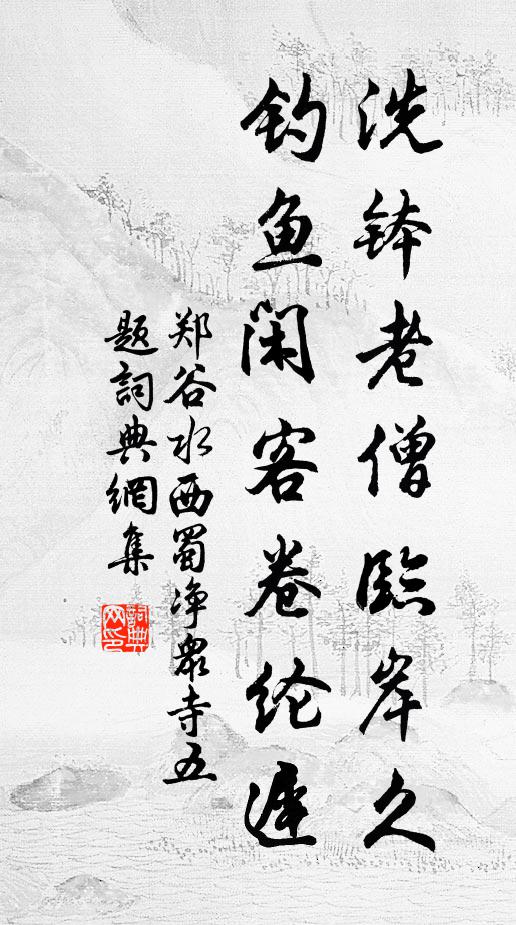 洗钵老僧臨岸久
钓鱼闲客卷纶遲
郑谷水西蜀净眾寺五
题詞典網集
詞典网印